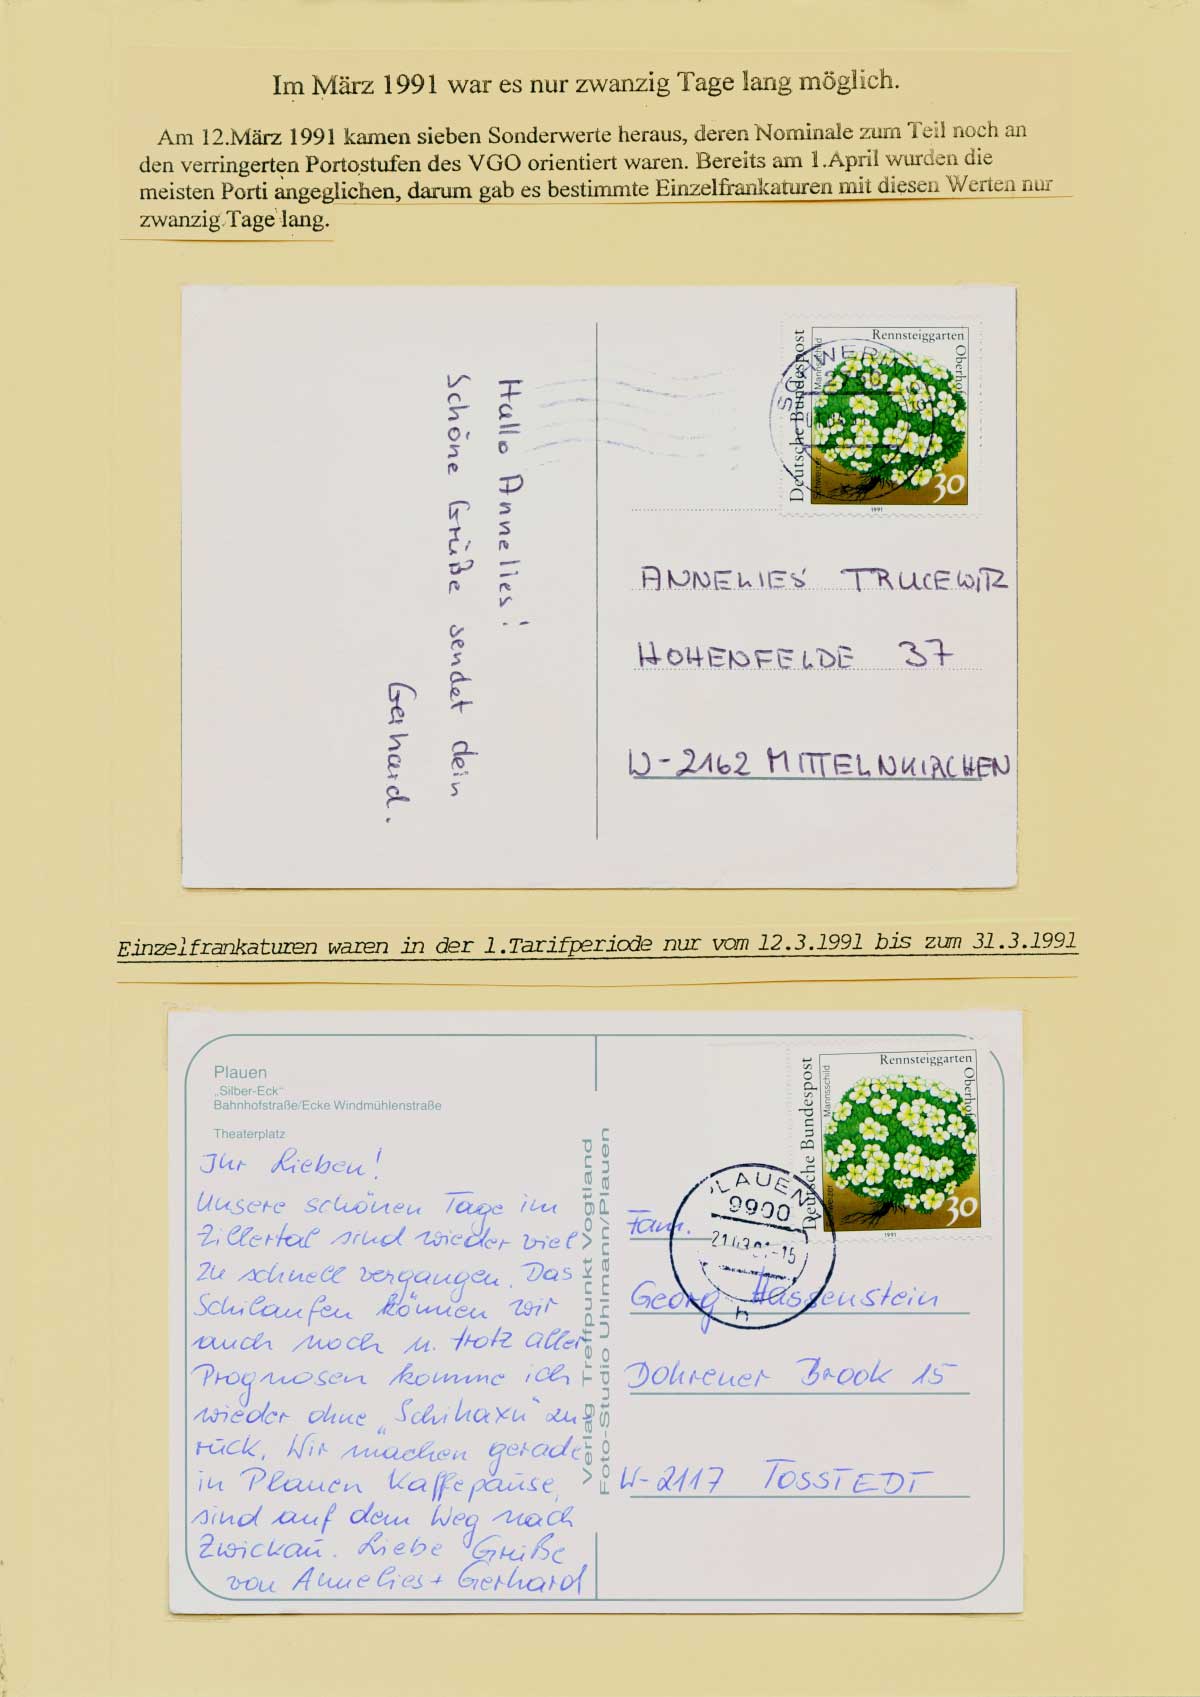 Im März 1991 war es nur zwanzig Tage lang möglich.
Am 12.März 1991 kamen sieben Sonderwerte heraus, deren Nominale zum Teil noch an
den verringerten Portostufen des VGO orientiert waren. Bereits am 1.April wurden die
meisten Porti angeglichen, darum gab es bestimmte Einzelfrankaturen mit diesen Werten nur
zwanzig Tage lang.
Hallo Annelies!
Schöne Grüße sendet dein
Gerhard.
Rennsteiggarten
Oberhof
Deutsche Bundespost
Schweizer Mannsschild
30
1991
SCHWERIN
ANNELIES TRUCEWITZ
HOHENFELDE 37
W-2162 MITTELNKIRCHEN
Einzelfrankaturen waren in der 1.Tarifperiode nur vom 12.3.1991 bis zum 31.3.1991
Plauen
„Silber-Eck“
Bahnhofstraße/Ecke Windmühlenstraße
Theaterplatz
Ihr Lieben!
Unsere schönen Tage im
Zillertal sind wieder viel
zu schnell vergangen. Das
Schilaufen können wir
auch noch u. trotz aller
Prognosen komme ich
wieder ohne „Schihaxn“ zu-
rück. Wir machen gerade
in Plauen Kaffepause,
sind auf dem Weg nach
Zwickau. Liebe Grüße
von Annelies + Gerhard
Verlag Treffpunkt Vogtland
Foto-Studio Uhlmann/Plauen
Rennsteiggarten
Oberhof
Deutsche Bundespost
Schweizer Mannsschild
30
1991
PLAUEN 1
9900
21.03.91-15
h
Fam.
Georg Hassenstein
Dohrener Brook 15
W-2117 TOSSTEDT